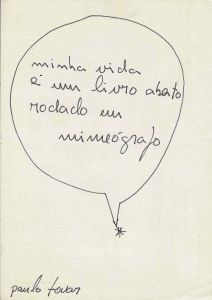 minha vida
é um livro aberto
rodado em
mimeógrafo
paulo tovar